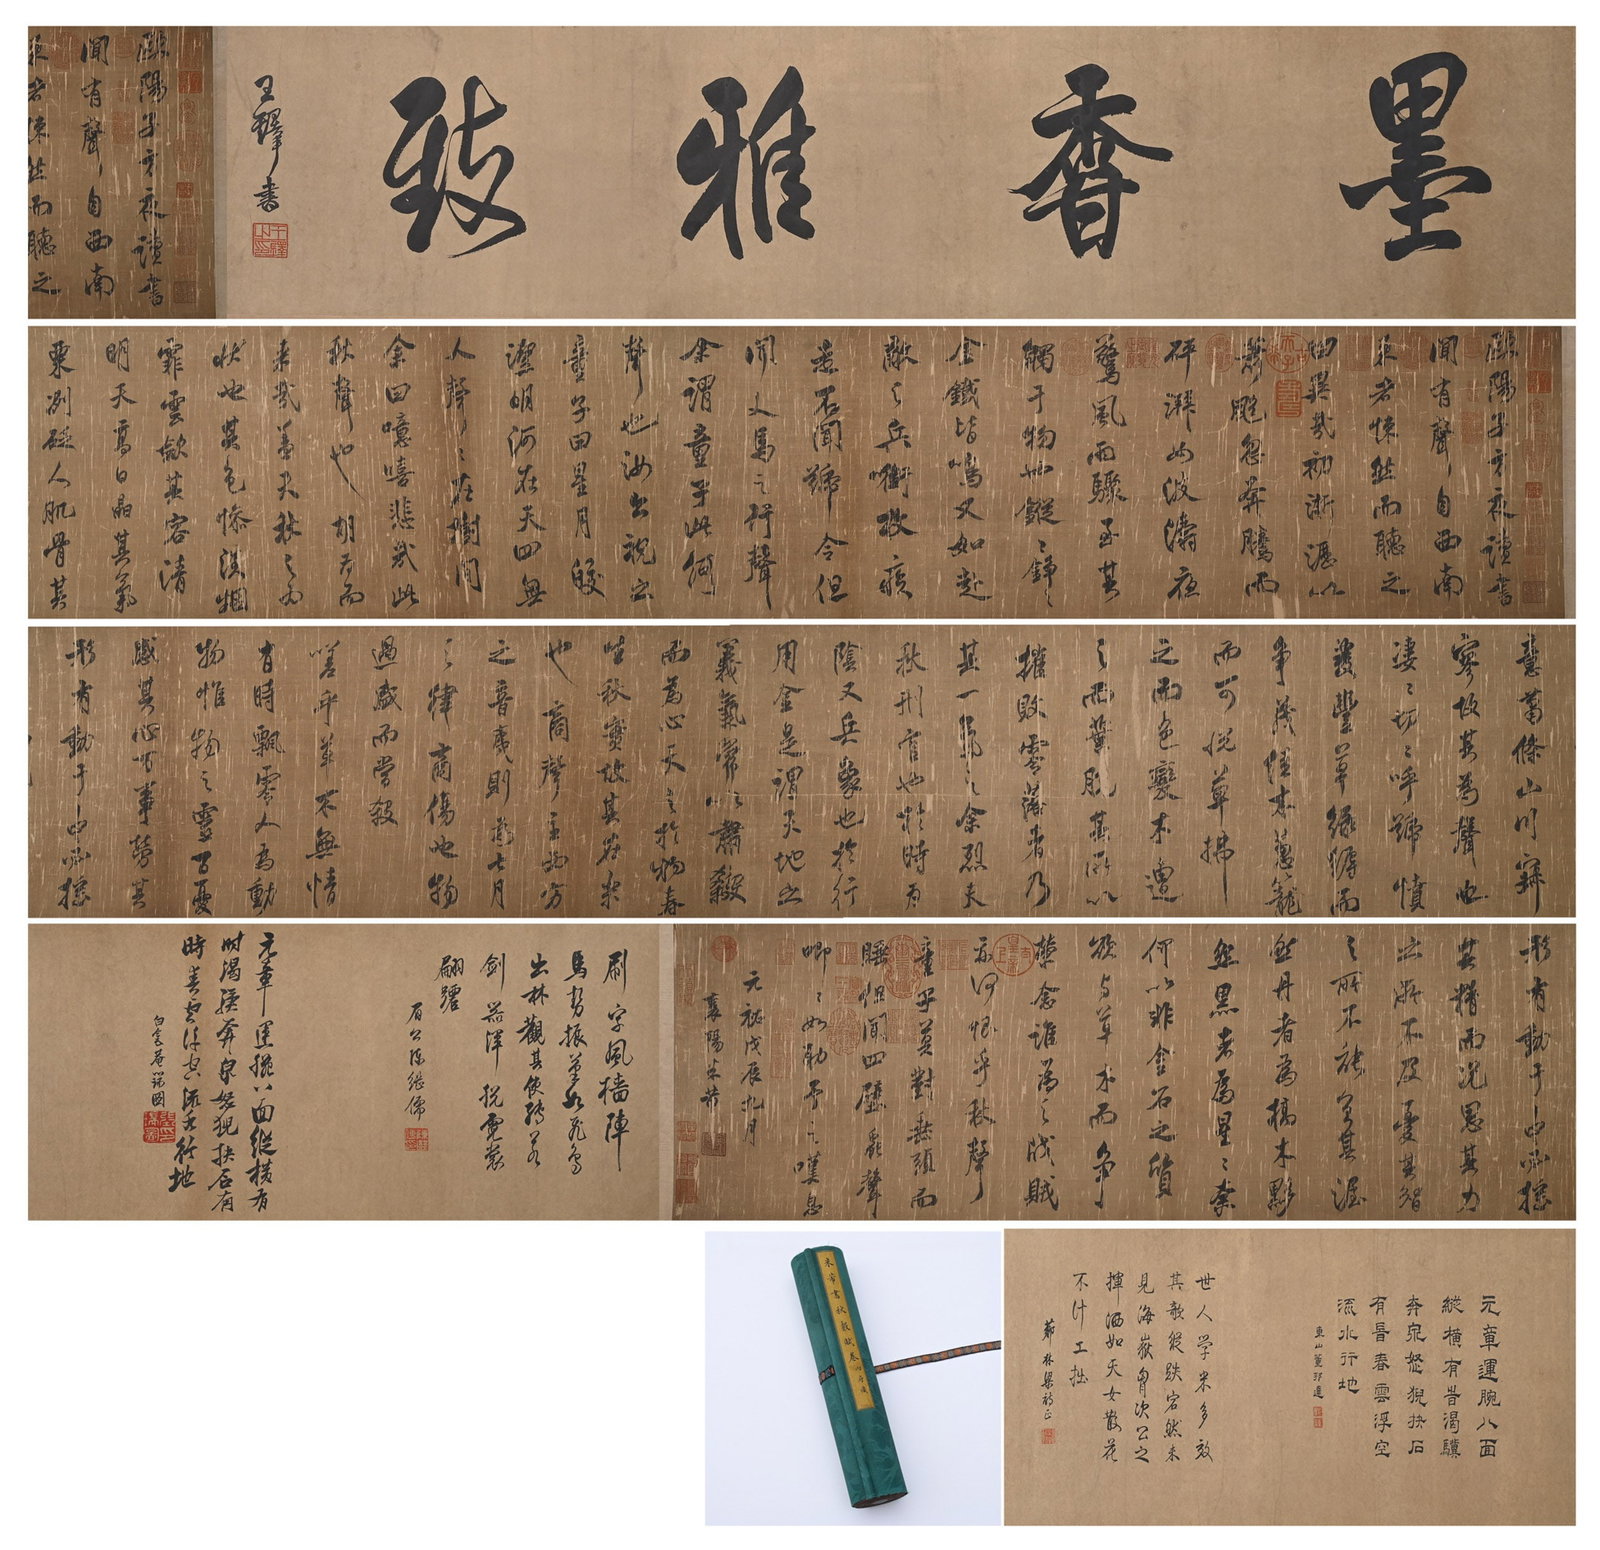 墨香雅致
王鐸書
歐陽子方夜讀書
聞有聲自西南
來者悚然而聽之
歐陽子方夜讀書
聞有聲自西南
來者悚然而聽之
曰異哉初淅瀝以
蕭颯忽奔騰而
砰湃如波濤夜
驚風雨驟至其
觸于物也鏦々錚々
金鐵皆鳴又如赴
敵之兵啣枚疾
走不聞號令但
聞人馬之行聲
余謂童子此何
聲也汝出視之
童子曰星月皎
潔明河在天四無
人聲々在樹間
余曰噫嘻悲哉此
秋聲也胡為而
來哉蓋夫秋之為
狀也其色慘淡烟
霏雲歛其容清
明天高日晶其氣
栗冽砭人肌骨其
意蕭條山川寂
寥故其為聲也
淒々切々呼號憤
發豐草綠縟而
爭茂佳木葱蘢
而可悅草拂
之而色變木遭
之而葉脫其所以
摧敗零落者乃
其一氣之余烈夫
秋刑官也於時為
陰又兵象也於行
用金是謂天地之
義氣常以肅殺
而為心天之於物春
生秋實故其在樂
也商聲主西方
之音夷則為七月
之律商傷也物
過盛而當殺
嗟乎草木無情
有時飄零人為動
物惟物之靈百憂
感其心萬事勞其
形有動于中必搖
形有動于中必搖
其精而況思其力
之所不及憂其智
之所不能宜其渥
然丹者為槁木黟
然黑者為星々奈
何以非金石之質
欲與草木而爭
榮念誰為之戕賊
亦何恨乎秋聲
童子莫對垂頭而
睡但聞四壁蟲聲
唧々如助予之嘆息
元祐戊辰九月
襄陽米芾
刷字風檣陣
馬勢振筆如飛鳥
出林觀其使轉若
劍器渾脫霓裳
翩躚
眉公陳繼儒
元章運腕八面縱橫有
時渴驥奔泉怒猊抉石有
時春雲浮空流水行地
白毫菴瑞圖
元章運腕八面
縱橫有旹渴驥
奔泉怒猊抉石
有旹春雲浮空
流水行地
東山董邦達
世人學米多效
其欹縱跌宕然未
見海嶽胷次公之
揮洒如天女散花
不計工拙
薌林梁詩正
米芾書秋聲賦卷內府藏